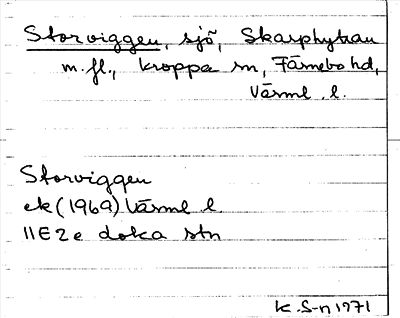 Storviggen, sjö, Skarphyttan
m.fl., Kroppa sn, Färnebo hd,
Värml. l.
Storviggen
ek (1969) Värml l.
11E2e doka stn
K.S-n 1971